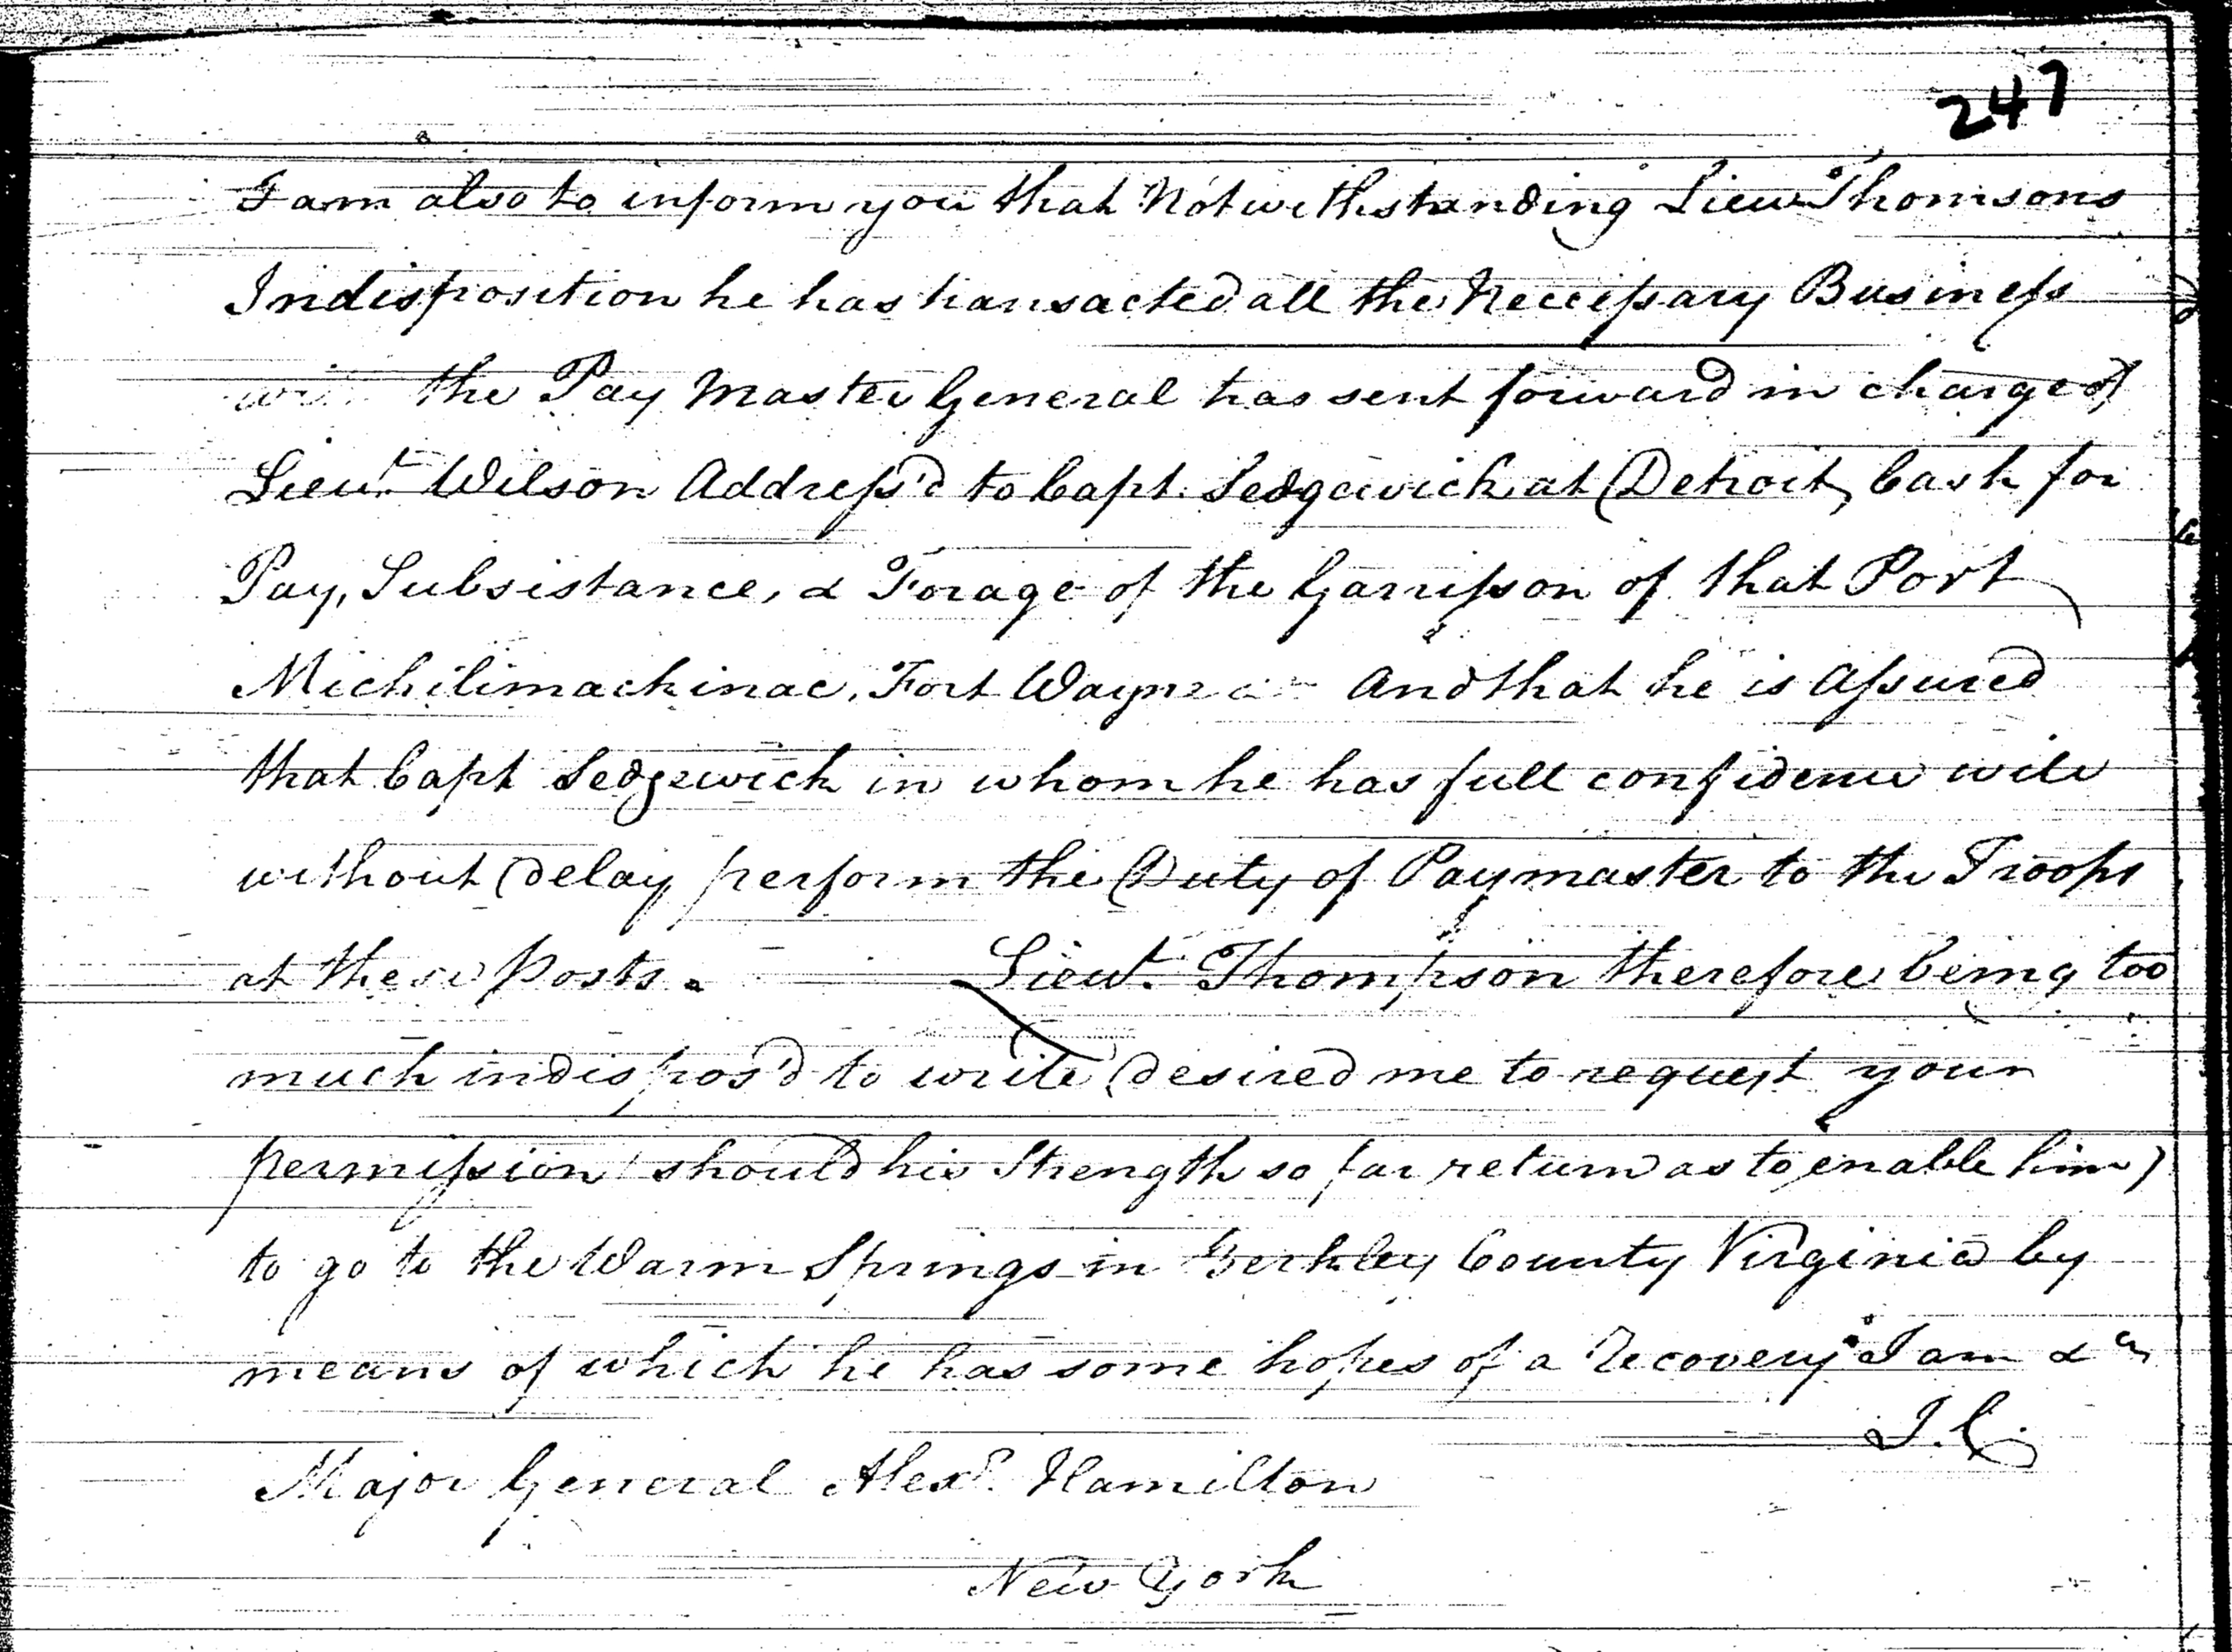 247
I am also to inform you that Notwithstanding Lieu Thomsons
Indisposition he has transacted all the Necessary Business
the Pay Master General has sent forward in charge of
Lieut. Wilson Address'd to Capt. Sedgewick at Detroit, Cash for
Pay, Subsistance, & Forage of the Garrisson of that Port
Michilimackinac, Fort Wayne And that he is Assured
that Capt Sedgewick in whom he has full confidence will
without delay, perform the Duty of Paymaster to the Troops
at these Posts. Lieut. Thompson therefore being too
much indispos'd to write desired me to request your
permission (should his Strength so far return as to enable him)
to go to the Warm Springs in Berkley County Virginia by
means of which he has some hopes of a Recovery I am &c
J. C.
Major General Alexr. Hamilton
New York